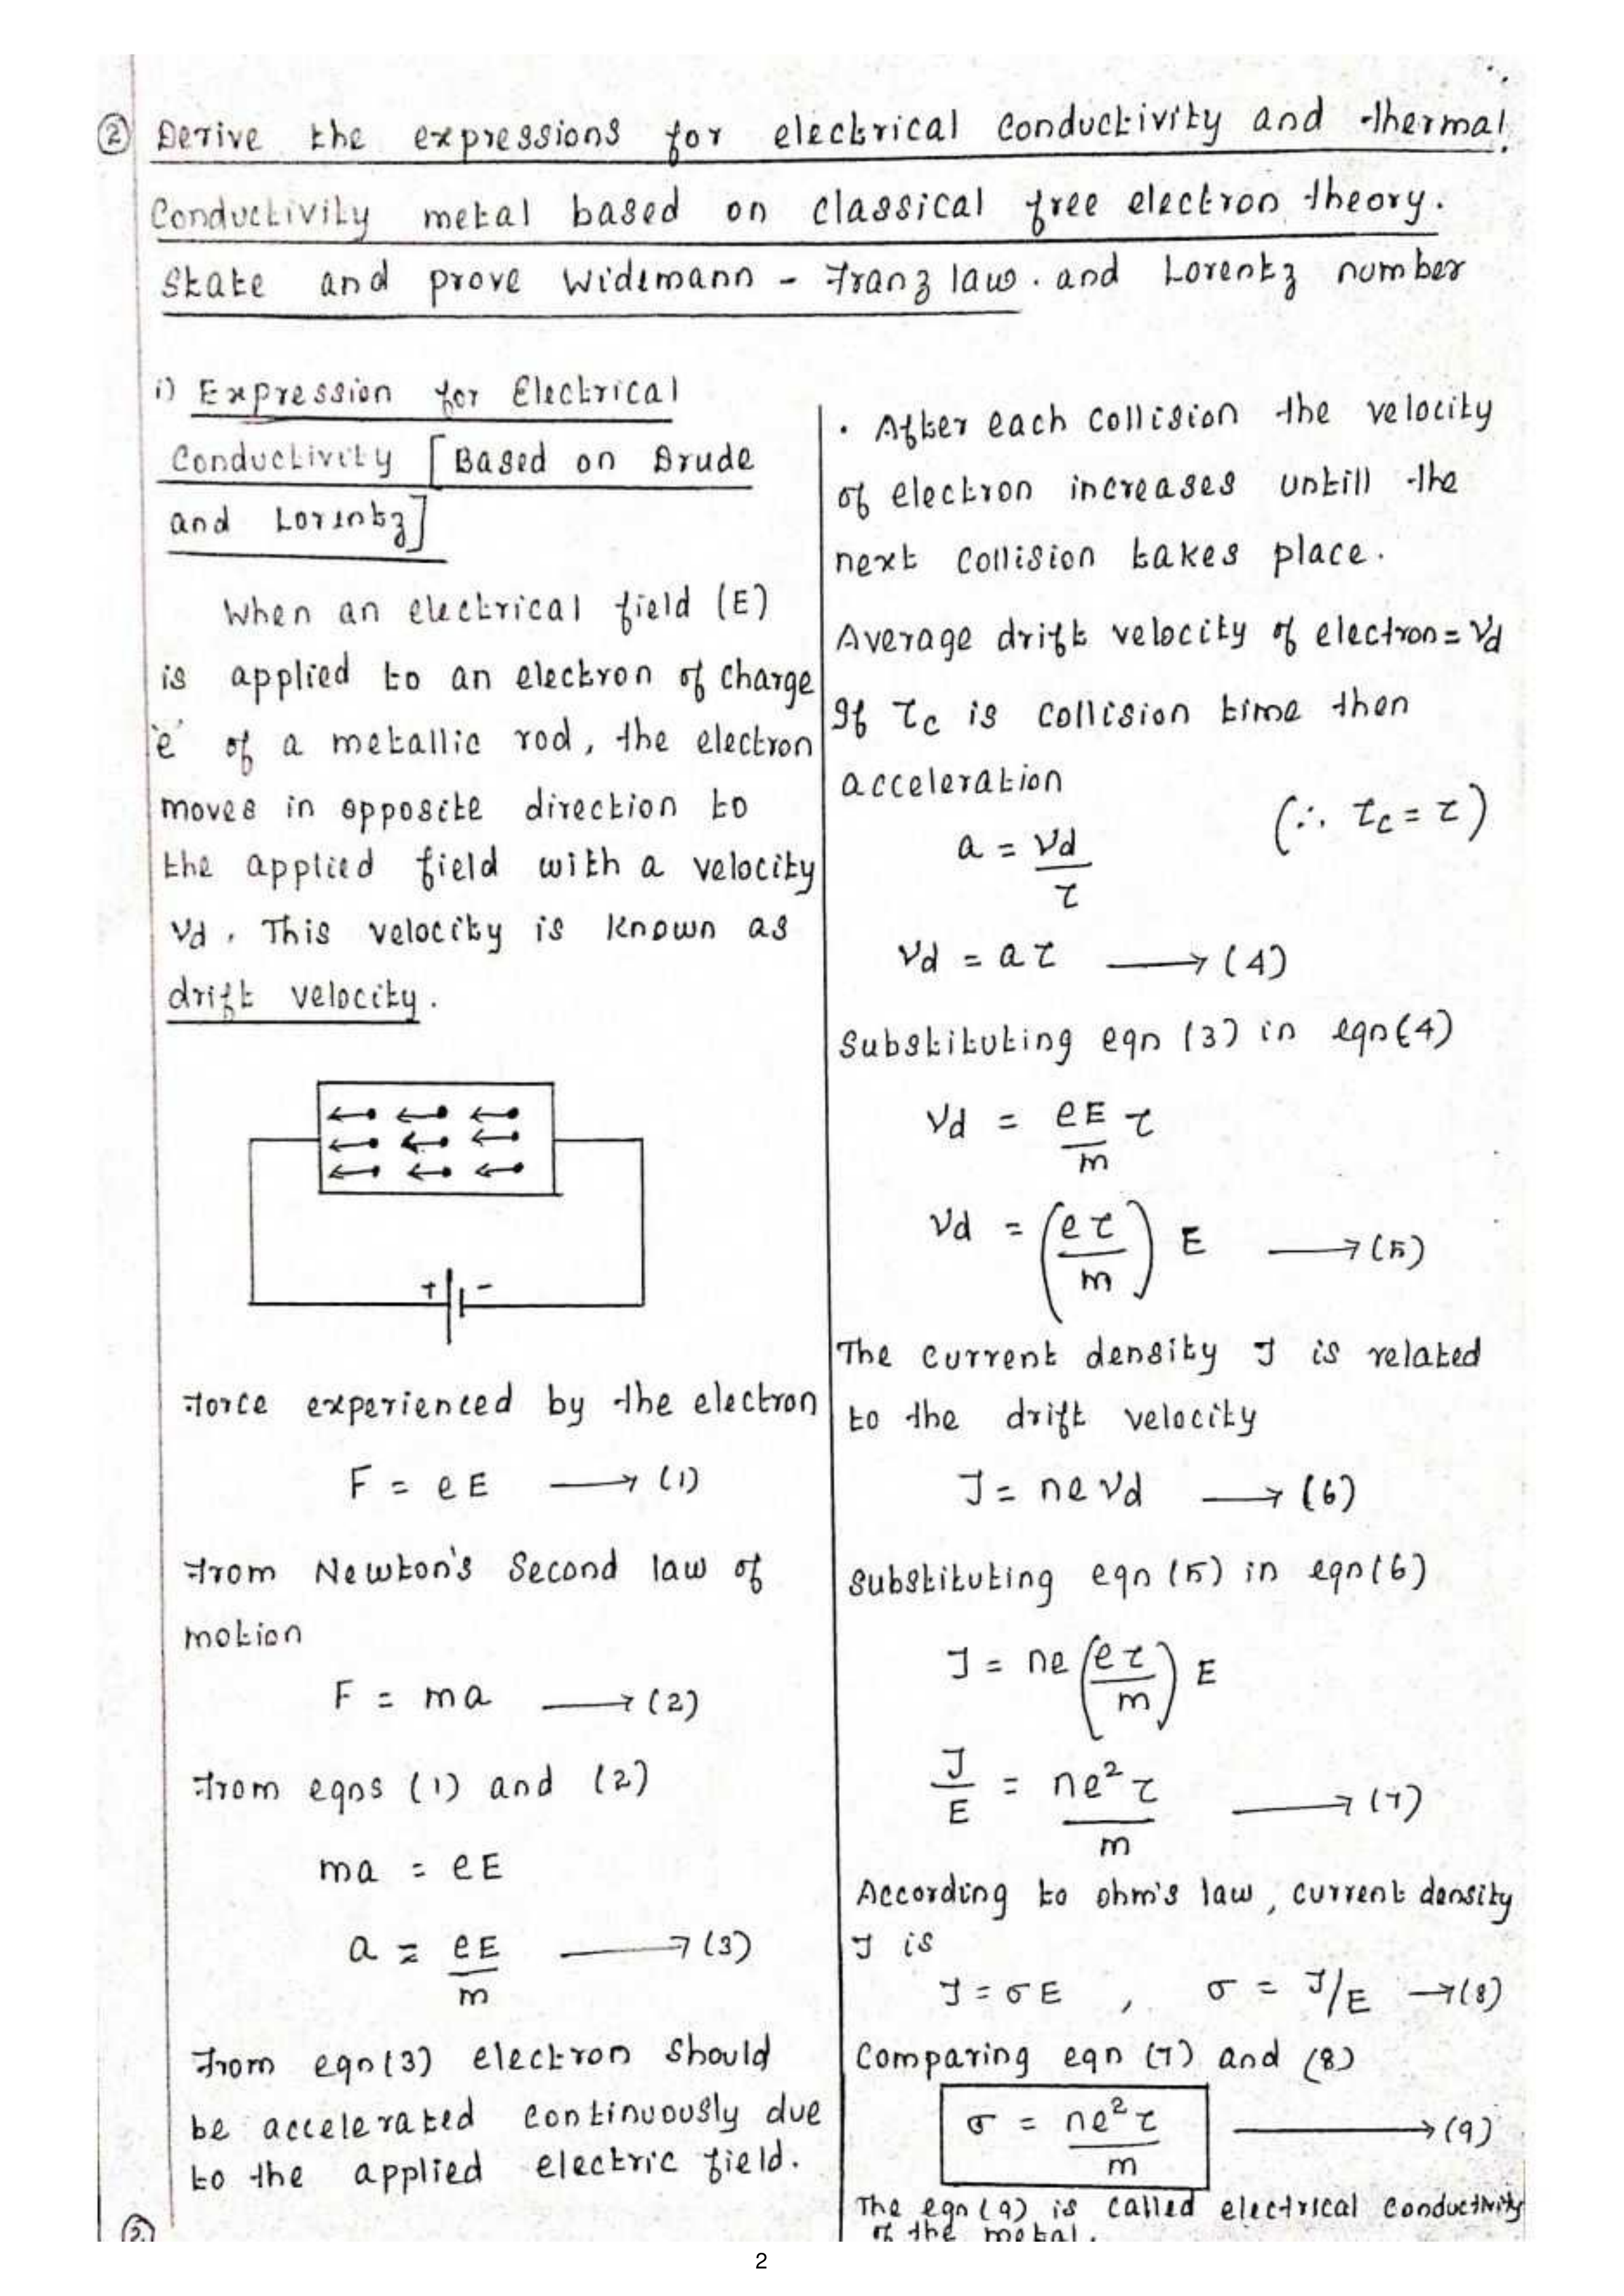 ② Derive the expressions for electrical conductivity and thermal
Conductivity metal based on classical free electron theory.
State and prove Widemann - Franz law. and Lorentz number
i) Expression for Electrical
Conductivity [Based on Drude
and Lorentz]
When an electrical field (E)
is applied to an electron of charge
'e' of a metallic rod, the electron
moves in opposite direction to
the applied field with a velocity
Vd. This velocity is known as
drift velocity.
+ -
Force experienced by the electron
F = eE ⟶ (1)
From Newton's Second law of
motion
F = ma ⟶ (2)
From eqns (1) and (2)
ma = eE
a = eE/m ⟶ (3)
From eqn(3) electron should
be accelerated continuously due
to the applied electric field.
②
• After each collision the velocity
of electron increases untill the
next collision takes place.
Average drift velocity of electron = Vd
If τc is collision time then
acceleration
(∴ τc = τ)
a = Vd/τ
Vd = aτ ⟶ (4)
Substituting eqn (3) in eqn(4)
Vd = eE/m τ
Vd = (eτ/m) E ⟶ (5)
The current density J is related
to the drift velocity
J = neVd ⟶ (6)
Substituting eqn (5) in eqn(6)
J = ne(eτ/m) E
J/E = ne²τ/m ⟶ (7)
According to ohm's law, current density
J is
J = σE , σ = J/E ⟶ (8)
Comparing eqn (7) and (8)
σ = ne²τ/m ⟶ (9)
The eqn (9) is called electrical conductivity
of the metal.
2